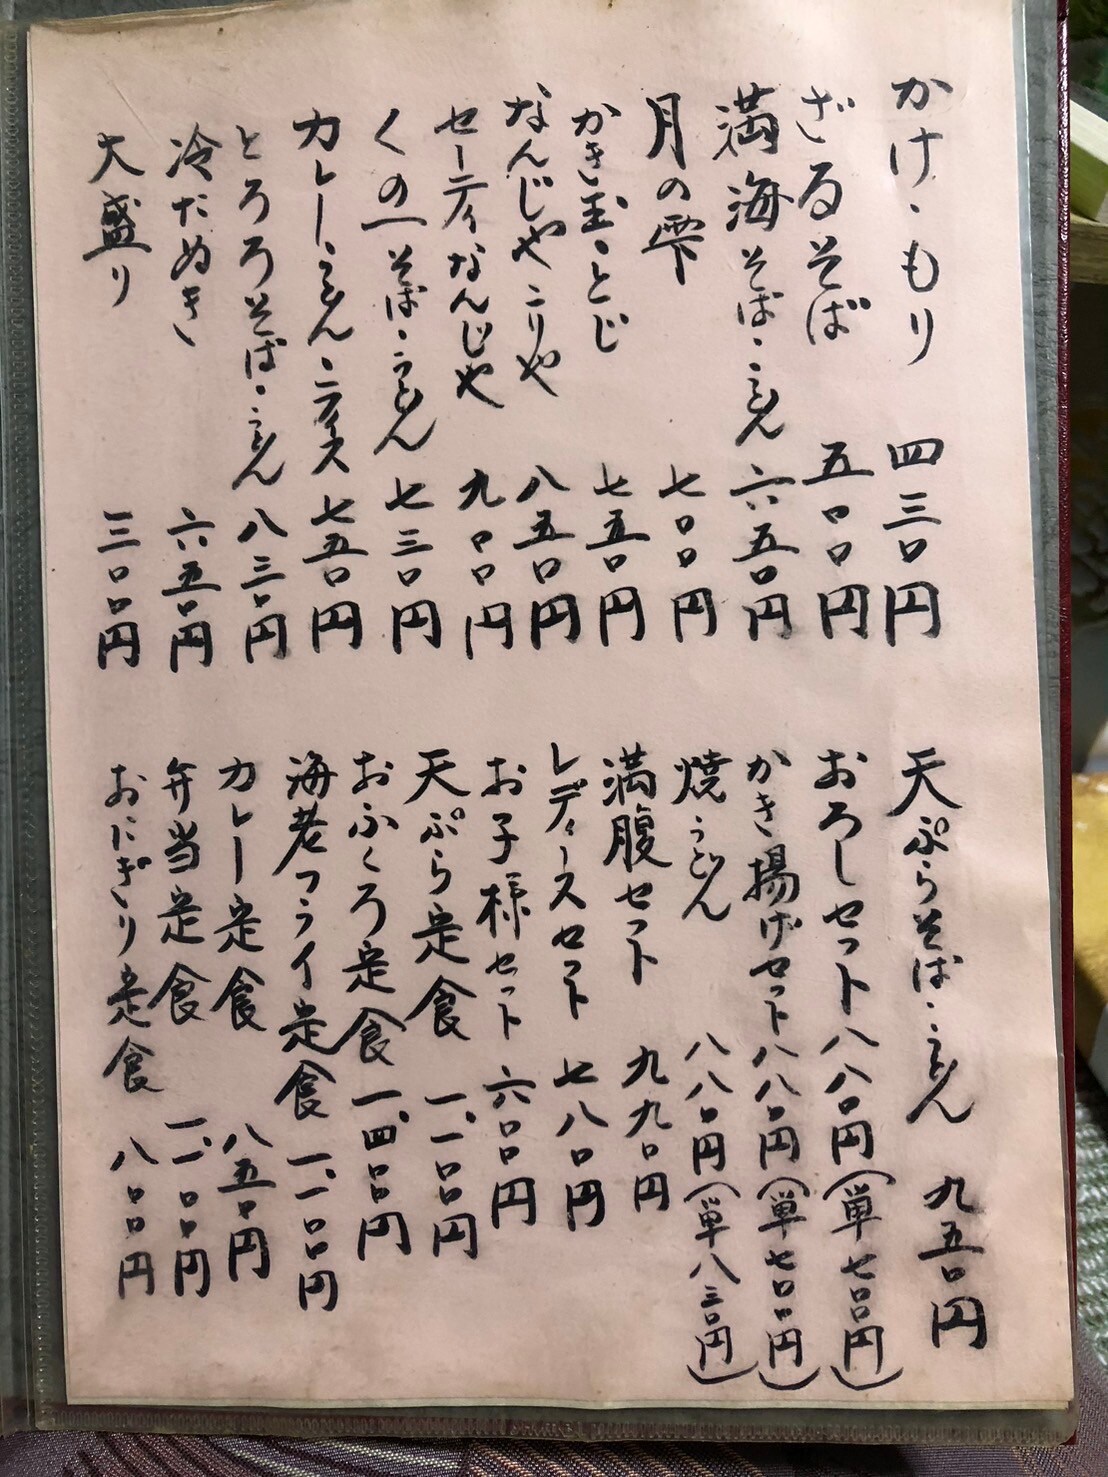 かけ・もり 四三〇円
ざるそば 五〇〇円
満海そば・うどん 六五〇円
月の雫 七〇〇円
かき玉・とじ 七五〇円
なんじゃこりゃ 八五〇円
セーラーなんじゃ 九〇〇円
くの一そば・うどん 七三〇円
カレーうどん・ライス 七五〇円
とろろそば・うどん 八三〇円
冷たぬき 六五〇円
大盛り 三〇〇円
天ぷらそば・うどん 九五〇円
おろしセット 八八〇円(単七〇〇円)
かき揚げセット 八八〇円(単七〇〇円)
焼うどん 八八〇円(単八三〇円)
満腹セット 九九〇円
レディースセット 七八〇円
お子様セット 六〇〇円
天ぷら定食 一、一〇〇円
おふくろ定食 一、四〇〇円
海老フライ定食 一、一〇〇円
カレー定食 八五〇円
弁当定食 一、一〇〇円
おにぎり定食 八〇〇円